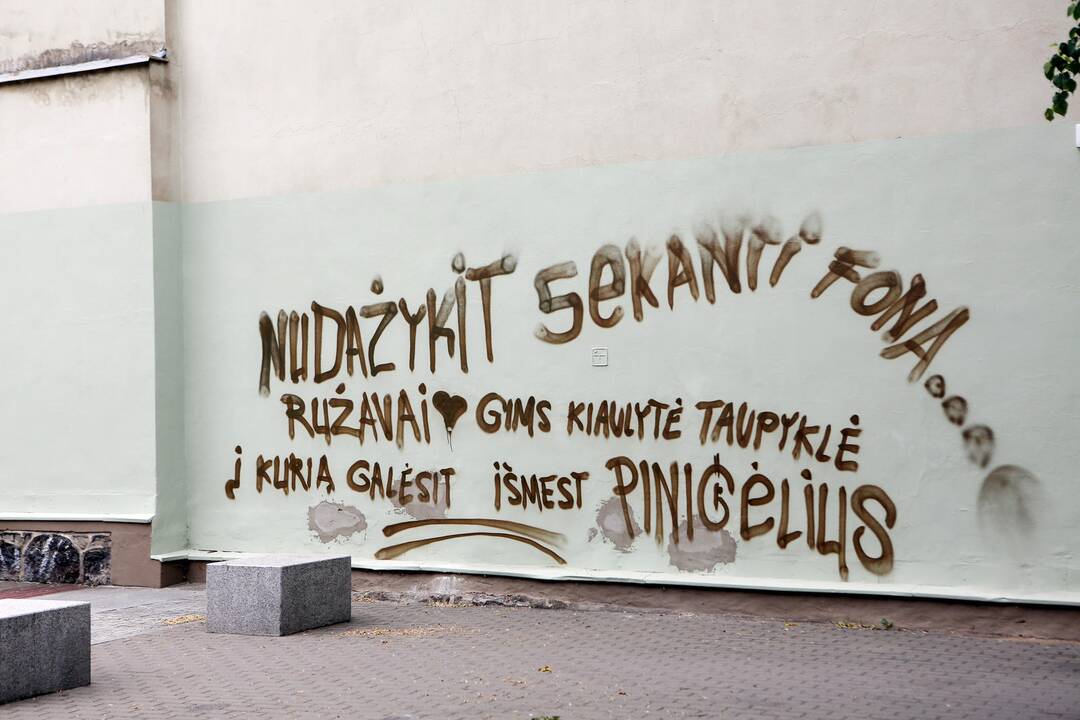 NUDAŽYKIT SEKANTĮ FONĄ...
RUŽAVAI ♥ GIMS KIAULYTĖ TAUPYKLĖ
Į KURIĄ GALĖSIT IŠMEST PINIGĖLIUS